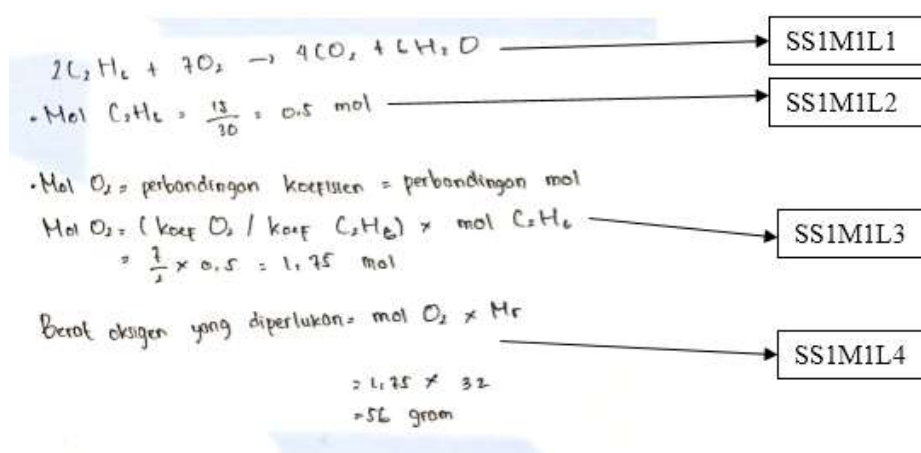 2C₂H₆ + 7O₂ → 4CO₂ + 6H₂O SS1M1L1
• Mol C₂H₆ = 15/30 = 0.5 mol SS1M1L2
• Mol O₂ = perbandingan koefisien = perbandingan mol
Mol O₂ = (koef O₂ / koef C₂H₆) × mol C₂H₆ SS1M1L3
= 7/2 × 0.5 = 1,75 mol
Berat oksigen yang diperlukan = mol O₂ × Mr
SS1M1L4
= 1,75 × 32
= 56 gram